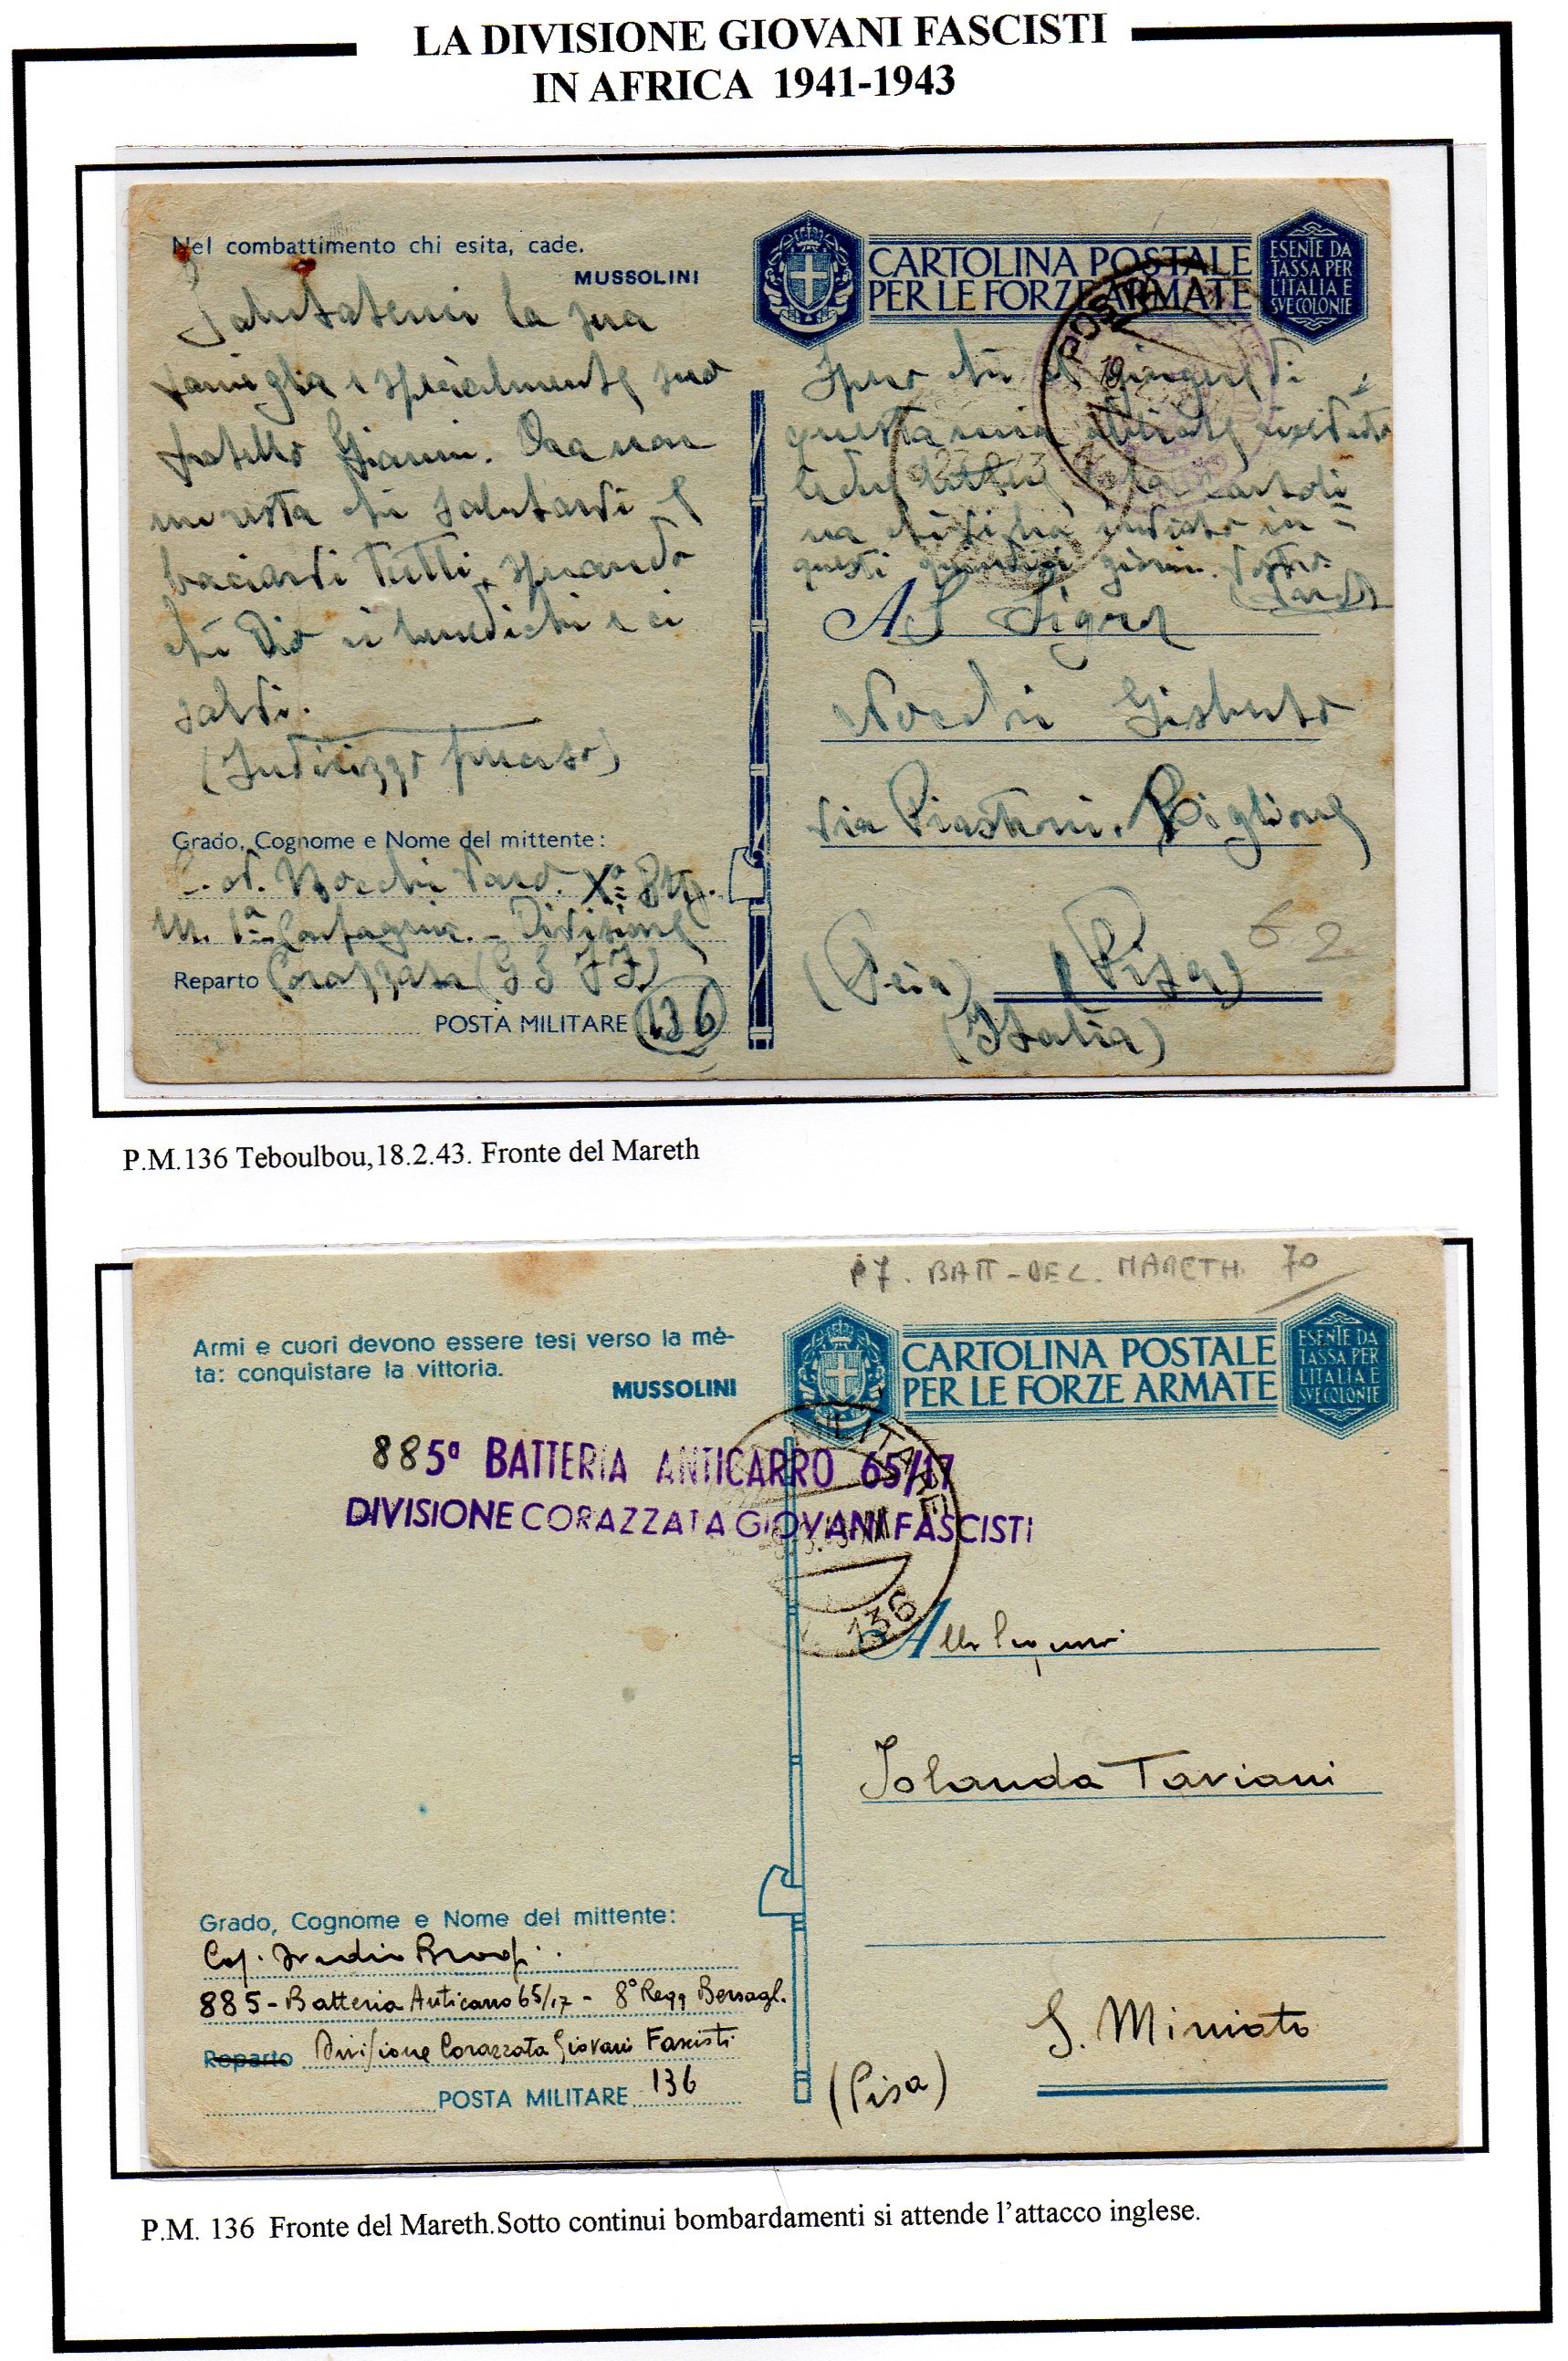 LA DIVISIONE GIOVANI FASCISTI
IN AFRICA 1941-1943
Nel combattimento chi esita, cade.
MUSSOLINI
Salutatemi la sua
famiglia e specialmente suo
fratello Gianni. Ora non
mi resta che salutarvi e
baciarvi tutti, sperando
che Dio ci benedichi e ci
salvi.
(Indirizzo preciso)
Grado, Cognome e Nome del mittente:
Nocchi Vard. Xº Btg.
M. 1ª Compagnia - Divisione
Reparto Corazzata (GG FF)
POSTA MILITARE 136
CARTOLINA POSTALE
PER LE FORZE ARMATE
ESENTE DA
TASSA PER
L'ITALIA E
SUE COLONIE
POSTA
Spero che vi giunga di
questa mia
la cartoli
na che vi ho inviato in
questi quindici giorni. Vostro
Al Signor
Nocchi Gisberto
Via Piastroni, Riglione
(Pisa)
(Italia)
62
P.M.136 Teboulbou,18.2.43. Fronte del Mareth
P7. BATT-DEL. MARETH. 70
Armi e cuori devono essere tesi verso la mè-
ta: conquistare la vittoria.
MUSSOLINI
CARTOLINA POSTALE
PER LE FORZE ARMATE
ESENTE DA
TASSA PER
L'ITALIA E
SUE COLONIE
885ª BATTERIA ANTICARRO 65/17
DIVISIONE CORAZZATA GIOVANI FASCISTI
MILITARE
136
Alla Signora
Iolanda Taviani
S. Miniato
(Pisa)
Grado, Cognome e Nome del mittente:
885-Batteria Anticarro 65/17 - 8º Regg Bersagl.
Reparto Divisione Corazzata Giovani Fascisti
POSTA MILITARE 136
P.M. 136 Fronte del Mareth.Sotto continui bombardamenti si attende l'attacco inglese.